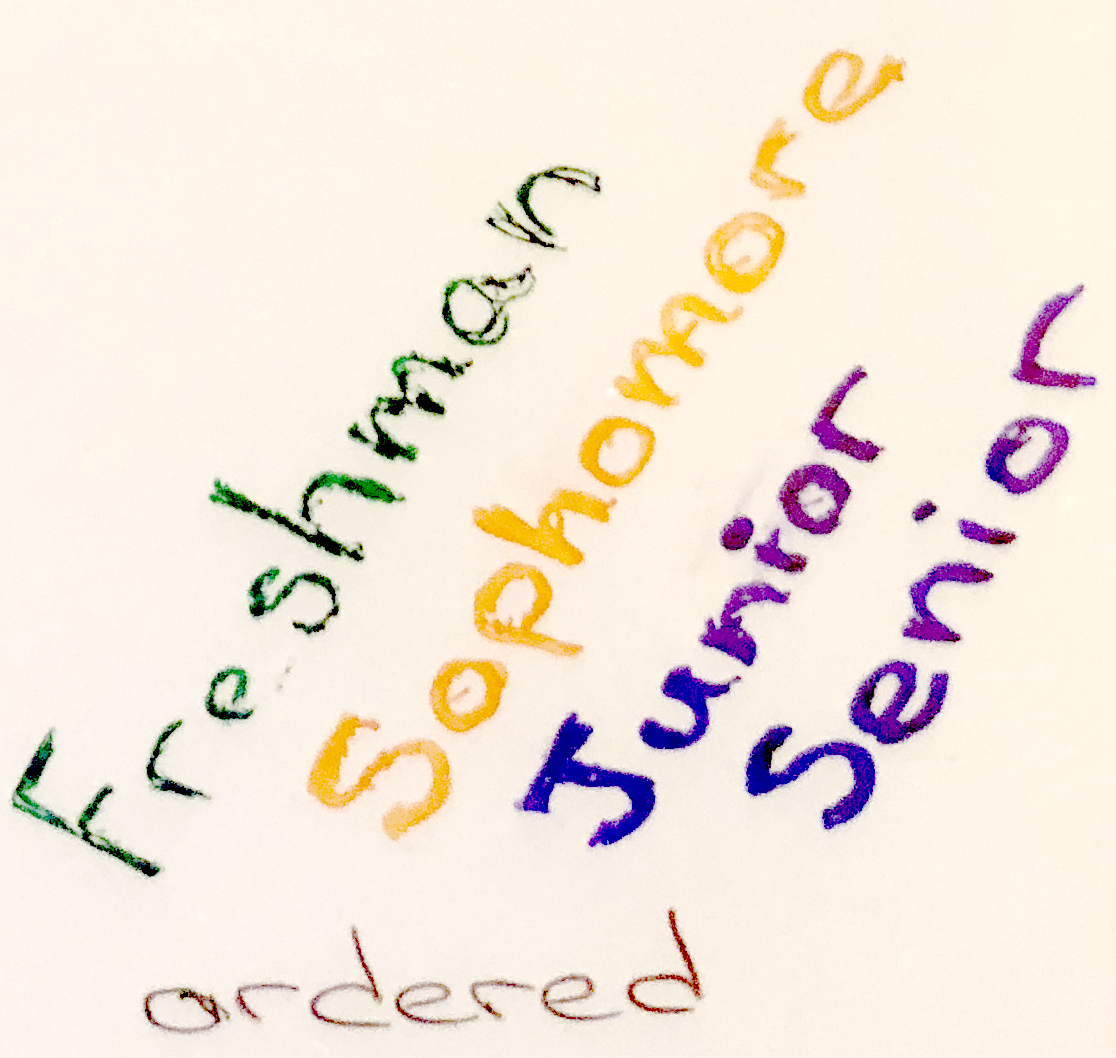 Freshman
Sophomore
Junior
Senior
ordered